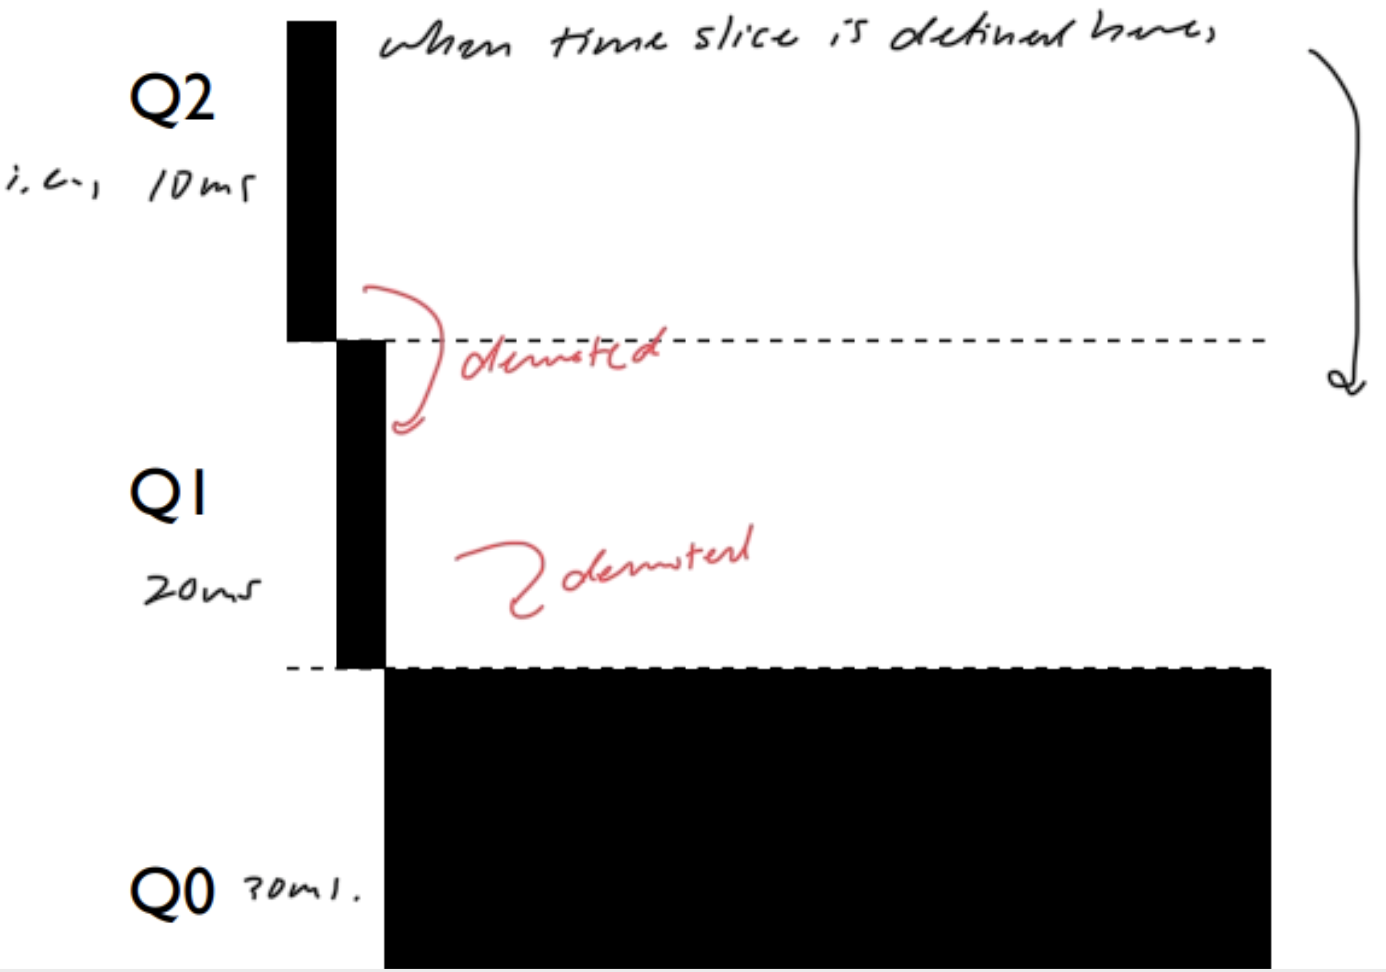 when time slice is defined here,
Q2
i.e., 10ms
demoted
Q1
demoted
20ms
Q0 30ms.